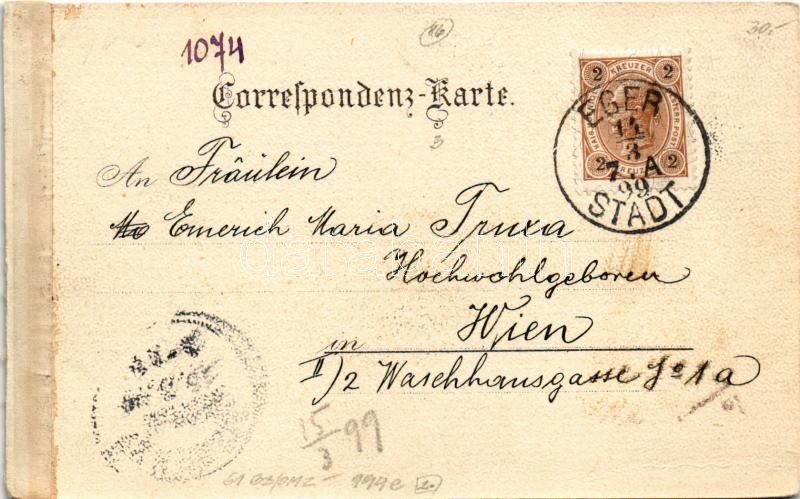 1074
86
30.-
Correspondenz-Karte.
3
2 KREUZER 2
2 KREUZER 2
EGER
14
3
7.A
99
STADT
An Fräulein
Emerich Maria Truxa
Hochwohlgeboren
in Wien
II/2 Waschhausgasse No 1a
15
3 99